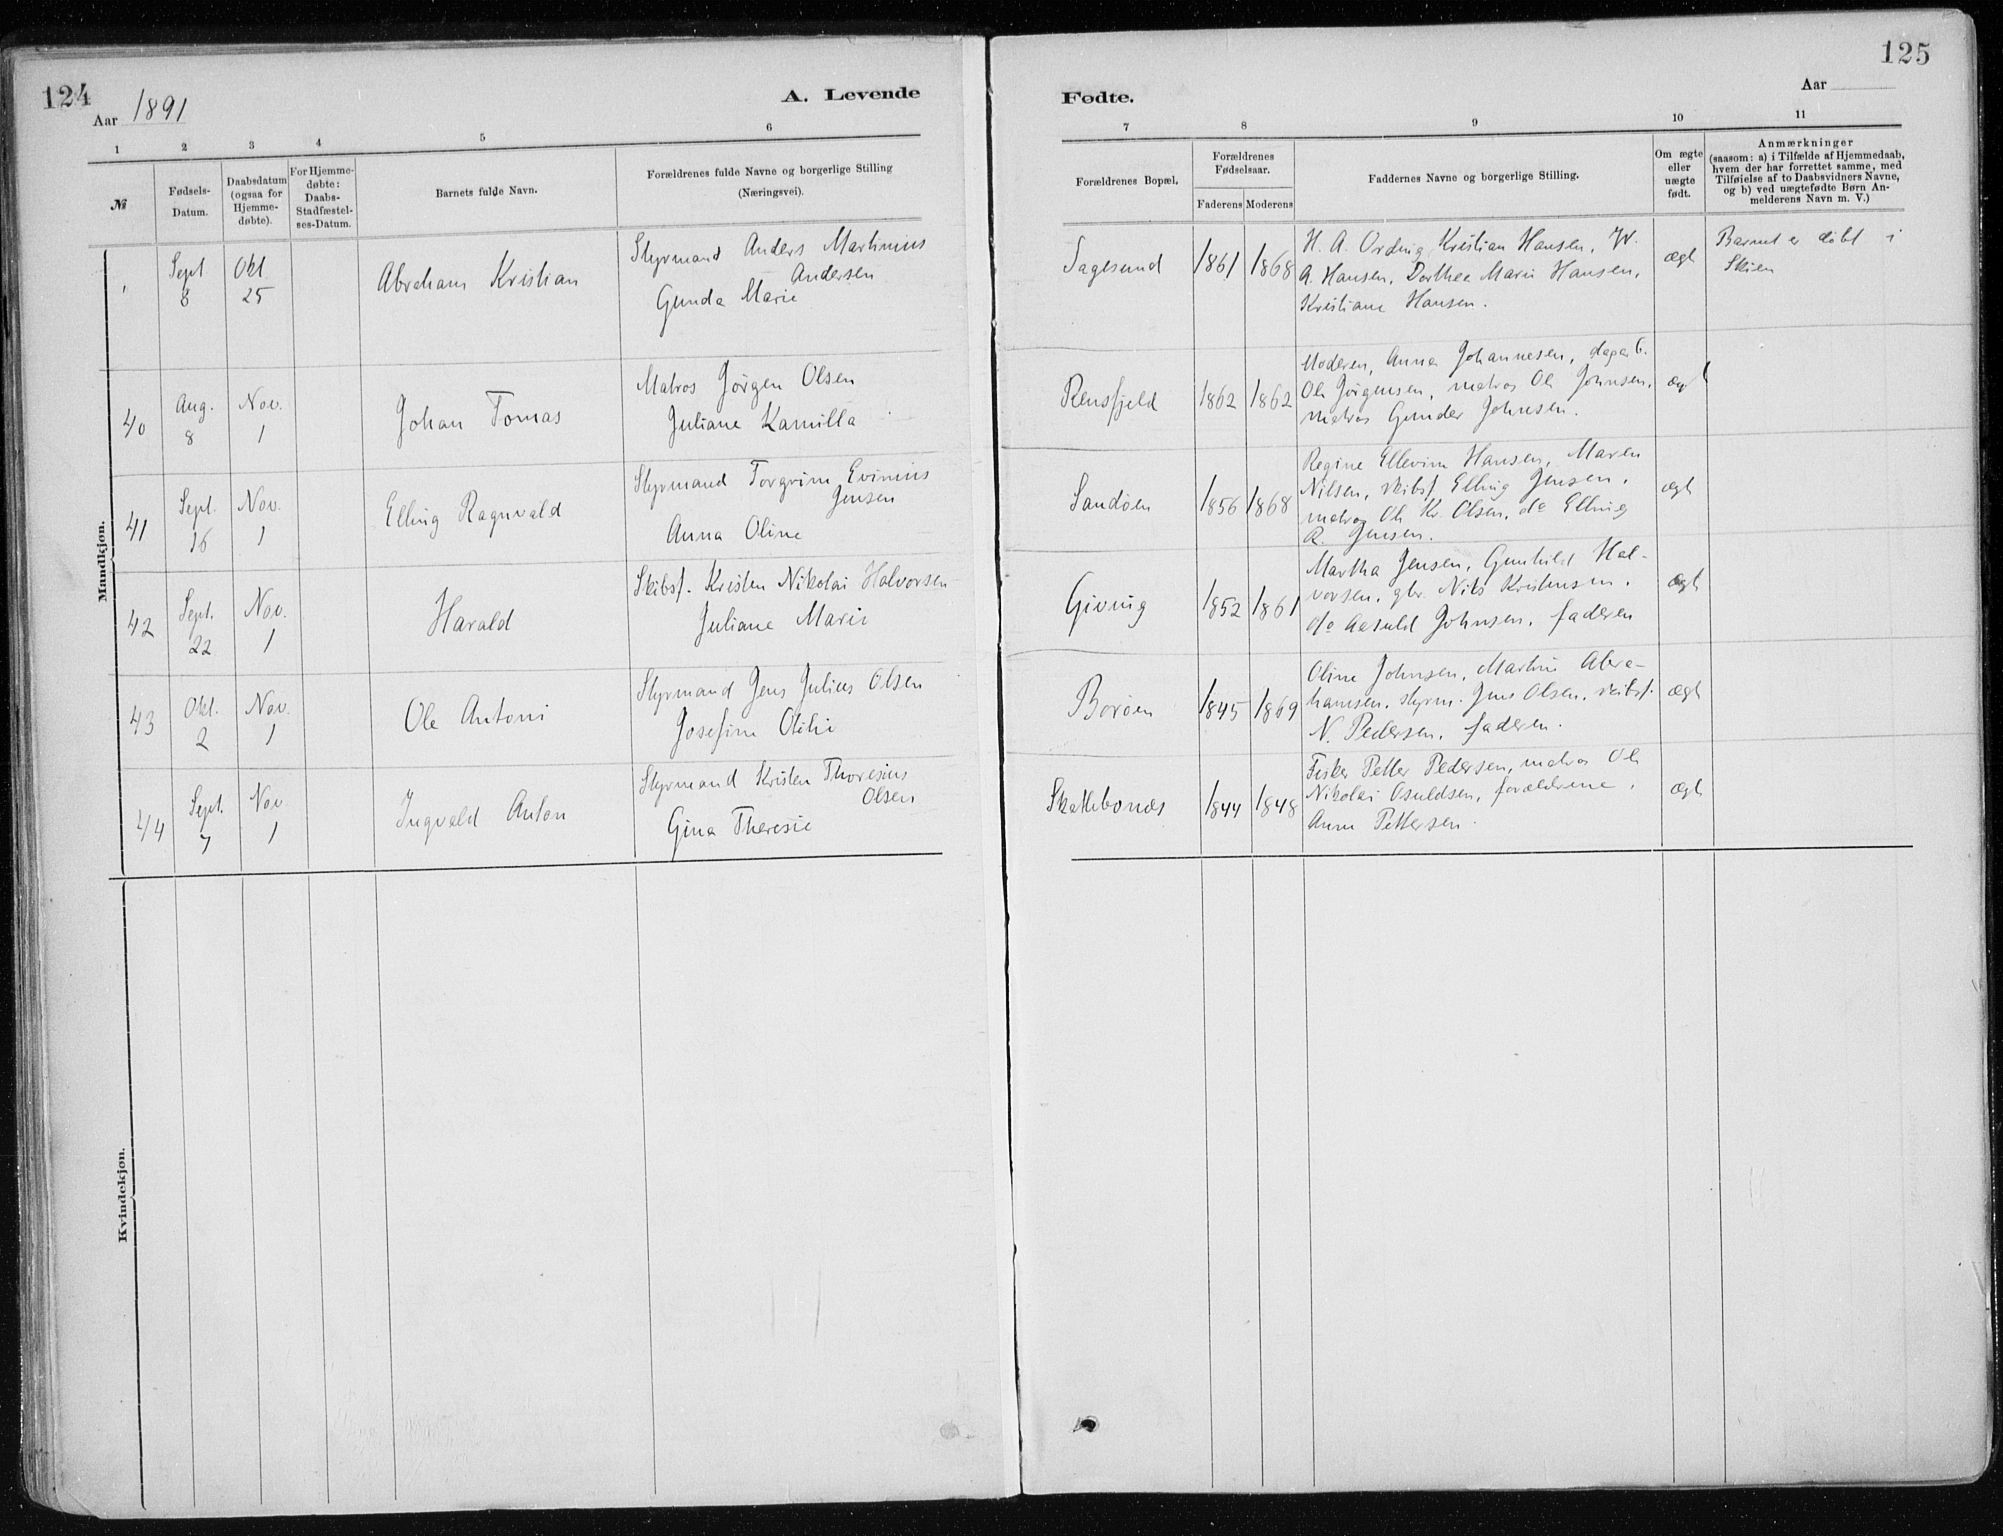 124
Aar 1891
A. Levende
1 2 3 4 5 6
№
Fødsels-
Datum.
Daabsdatum
(ogsaa for
Hjemme-
døbte).
For Hjemme-
døbte:
Daabs-
Stadfæstel-
ses-Datum.
Barnets fulde Navn.
Forældrenes fulde Navne og borgerlige Stilling
(Næringsvei).
Mandkjøn.
Sept 8
Okt 25
Abraham Kristian
Styrmand Anders Martinius
Andersen
Gunda Marie
40
Aug. 8
Nov. 1
Johan Tomas
Matros Jörgen Olsen
Juliane Kamilla
41
Sept. 16
Nov. 1
Elling Ragnvald
Styrmand Torgrim Evinius
Jensen
Anna Oline
42
Sept. 22
Nov. 1
Harald
Skibsf. Kristen Nikolai Halvorsen
Juliane Marie
43
Okt. 2
Nov. 1
Ole Antoni
Styrmand Jens Julius Olsen
Josefine Otilie
44
Sept. 7
Nov 1
Ingvald Anton
Styrmand Kristen Thoresius
Olsen
Gina Theresie
Kvindekjøn.
125
Fødte.
Aar
7 8 9 10 11
Forældrenes Bopæl.
Forældrenes
Fødselsaar.
Faderens Moderens
Faddernes Navne og borgerlige Stilling.
Om ægte
eller
uægte
født.
Anmærkninger
(saasom: a) i Tilfælde af Hjemmedaab,
hvem der har forrettet samme, med
Tilføielse af to Daabsvidners Navne,
og b) ved uægtefødte Børn An-
melderens Navn m. V.)
Sagesund
1861 1868
H. A. Ording, Kristian Hansen, W.
A. Hansen, Dorthea Marie Hansen,
Kristiane Hansen.
ægt
Barnet er döbt i
Skien
Rensfjeld
1862 1862
Moderen, Anna Johannesen, dagarb.
Ole Jörgensen, matros Ole Johnsen,
matros Gunder Johnsen.
ægt
Sandöen
1856 1868
Regine Ellevine Hansen, Maren
Nilsen, skibsf. Elling Jensen,
matros Ole Kr. Olsen, do Elling
R. Jensen.
ægt
Giving
1852 1861
Martha Jensen, Gunhild Hal-
vorsen, gbr. Nils Kristensen,
do Aasuld Johnsen, faderen
ægt
Boröen
1845 1869
Oline Johnsen, Martine Abra-
hamsen, styrm. Jens Olsen, skibsf.
N. Pedersen, faderen.
ægt
Skattebonæs
1844 1848
Fisker Petter Pedersen, matros Ole
Nikolai Osuldsen, forældrene,
Anne Pettersen.
ægt